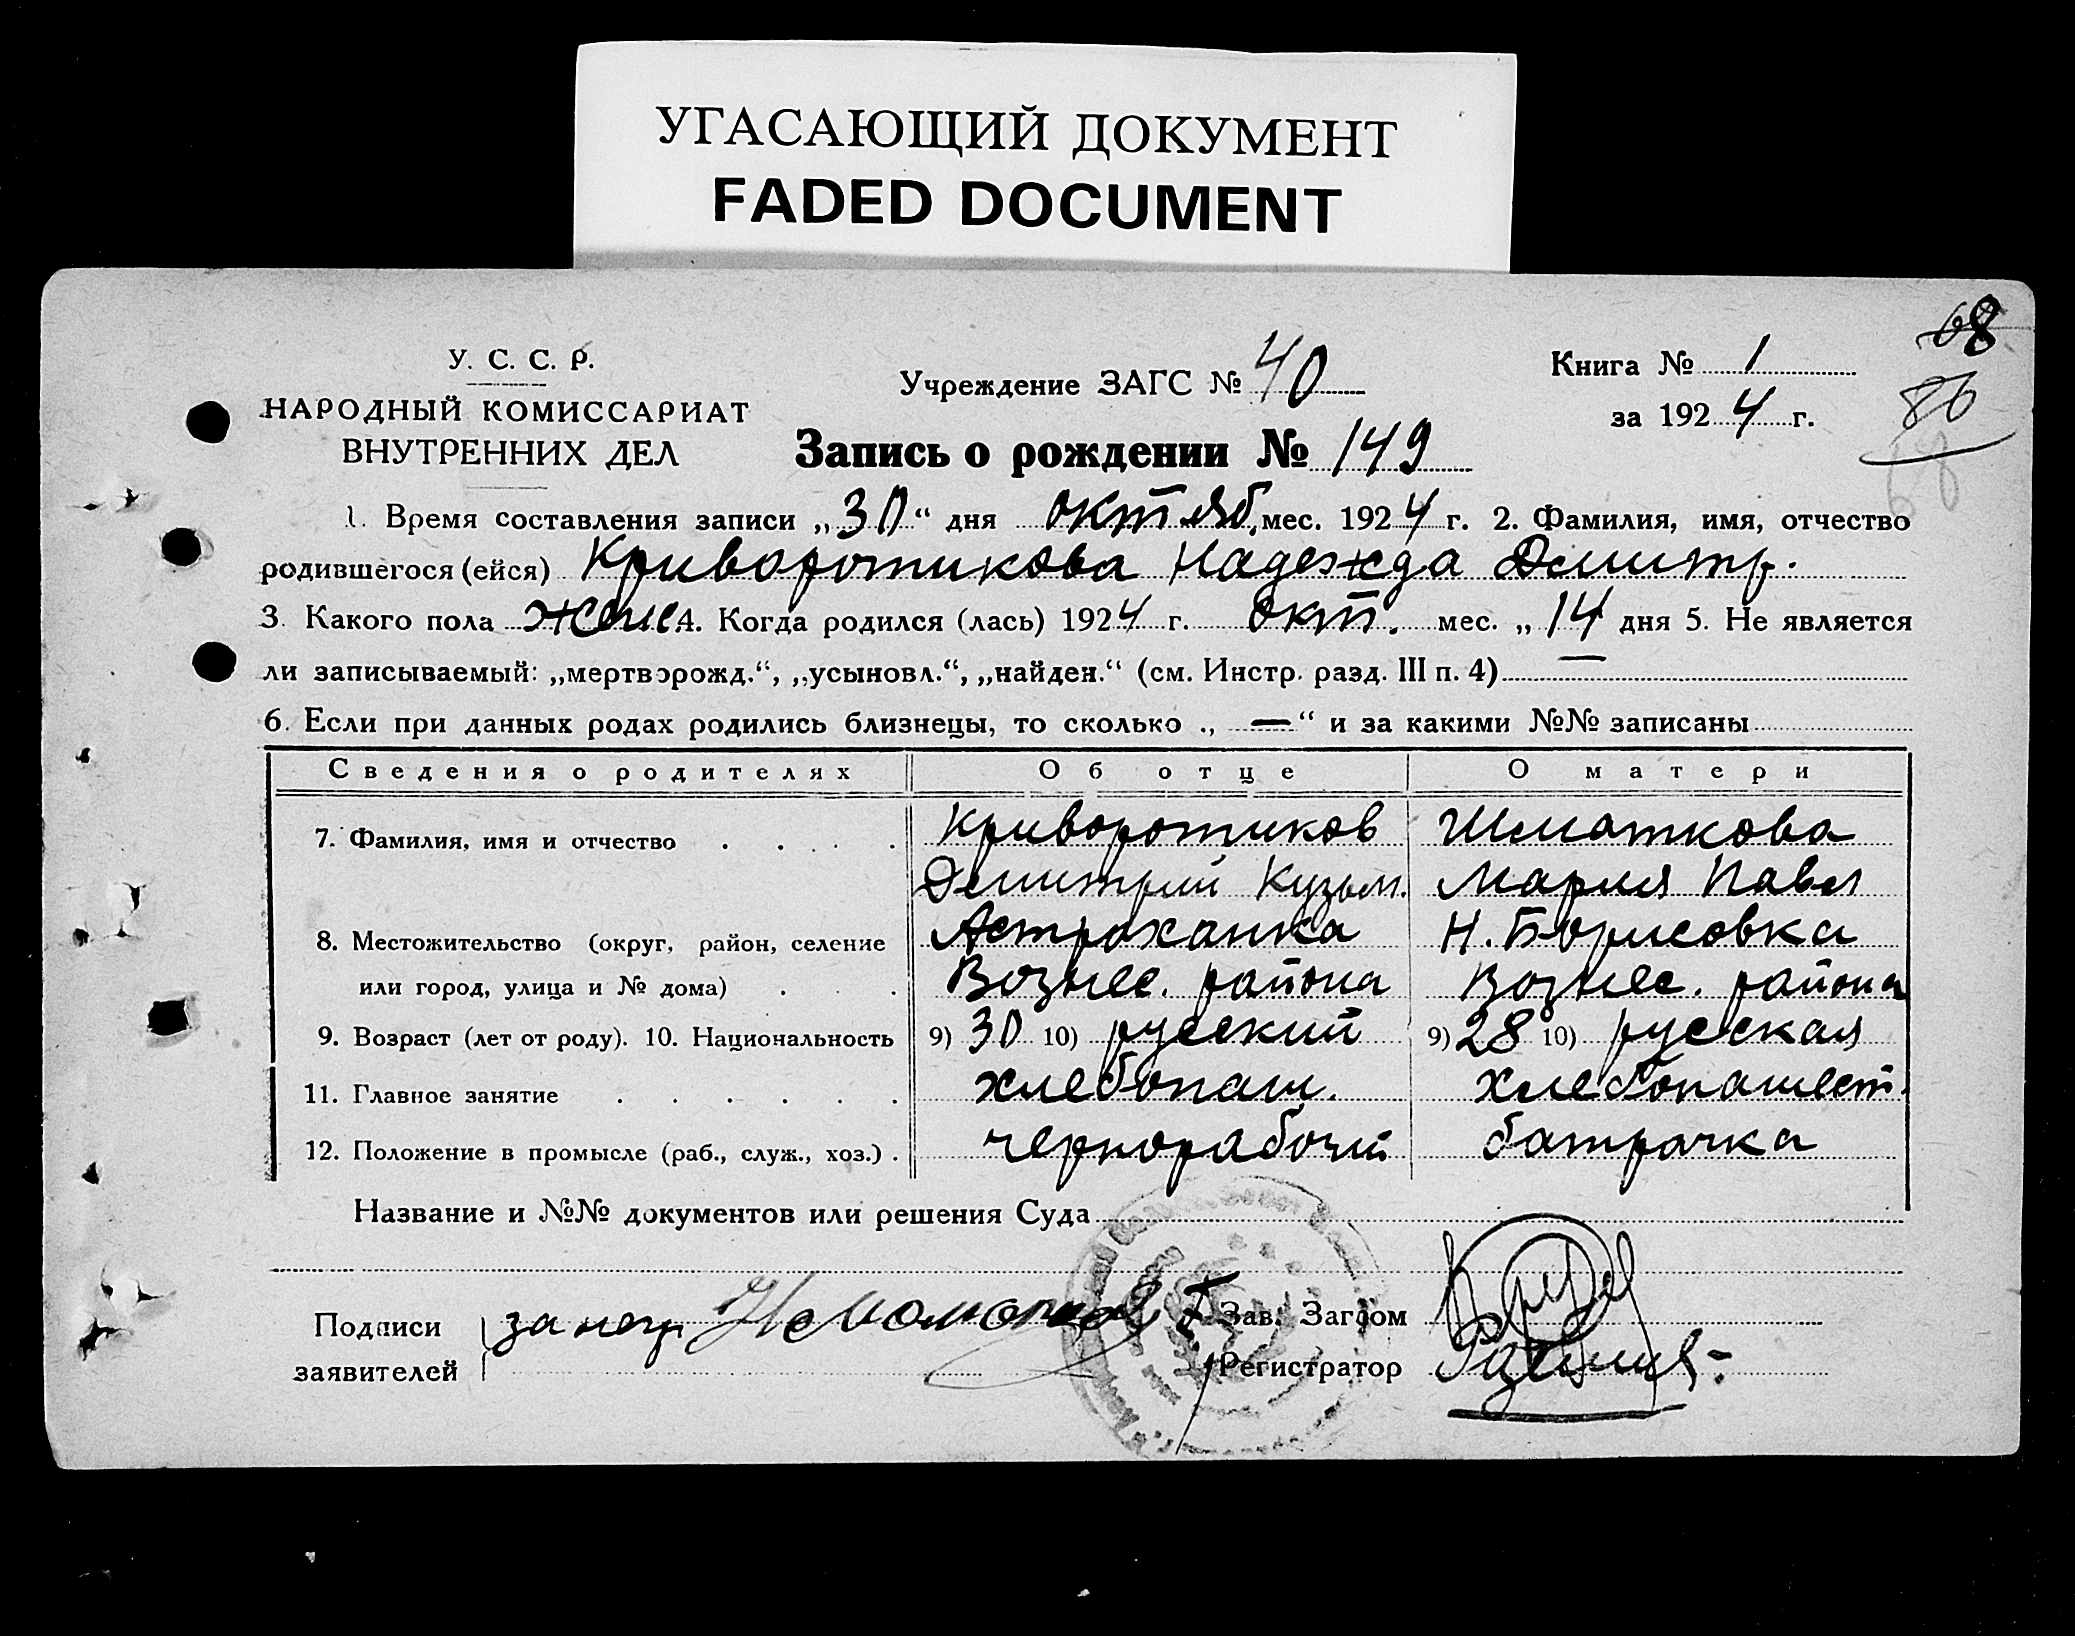 УГАСАЮЩИЙ ДОКУМЕНТ
FADED DOCUMENT
68
У. С. С. Р.
НАРОДНЫЙ КОМИССАРИАТ
ВНУТРЕННИХ ДЕЛ
Учреждение ЗАГС № 40
Книга № 1
за 1924 г.
86
68
Запись о рождении № 149
1. Время составления записи „30“ дня октяб. мес. 1924 г. 2. Фамилия, имя, отчество
родившегося (ейся) Криворотикова Надежда Дмитр.
3. Какого пола женс 4. Когда родился (лась) 1924 г. окт. мес. „14 дня 5. Не является
ли записываемый: „мертворожд.“, „усыновл.“, „найден.“ (см. Инстр. разд. III п. 4) —
6. Если при данных родах родились близнецы, то сколько „ — “ и за какими №№ записаны
Сведения о родителях Об отце О матери
7. Фамилия, имя и отчество Криворотиков Шматкова
Дмитрий Кузьм. Мария Павл
8. Местожительство (округ, район, селение Астраханка Н. Борисовка
или город, улица и № дома) Вознес. района Вознес. района
9. Возраст (лет от роду). 10. Национальность 9) 30 10) русский 9) 28 10) русская
11. Главное занятие хлебопаш. хлебопашест.
12. Положение в промысле (раб., служ., хоз.) чернорабочий батрачка
Название и №№ документов или решения Суда
Подписи за негр
заявителей
Зав. Загсом
Регистратор